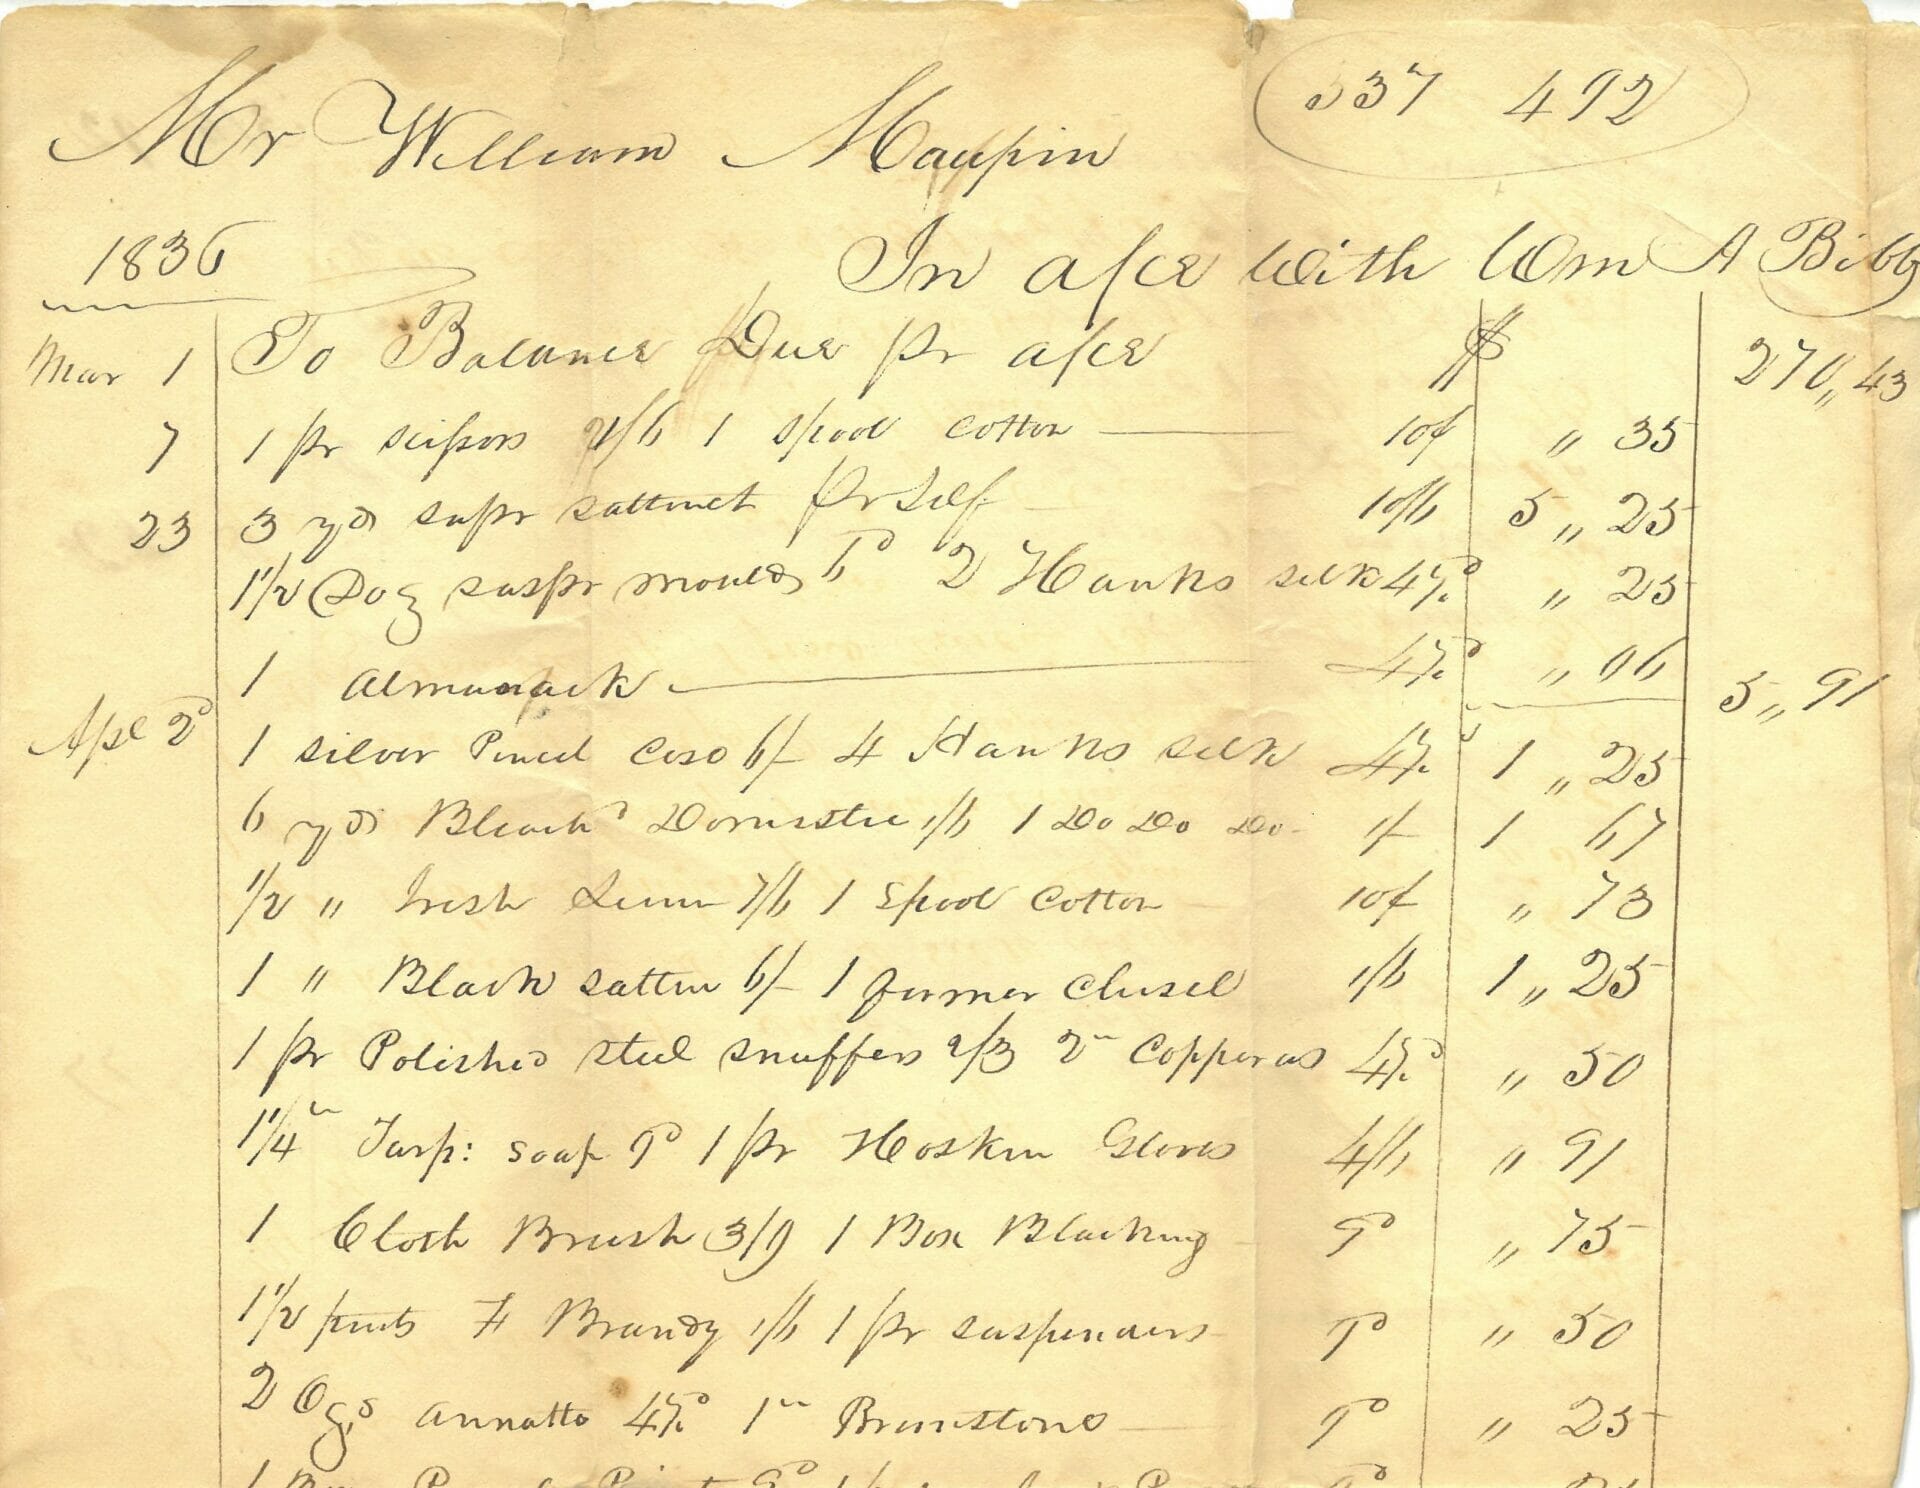 337 492
Mr William Maupin
1836 In a/ce with Wm A Bibb
Mar 1 To Balance Due pr a/ce $ 270,,43
7 1 pr scissors 1/6 1 spool cotton 10d ,, 35
23 3 yds supr sattinet pr self 10/6 5 ,, 25
1 1/2 Doz suspr moulds 6d 2 Hanks silk 4½d ,, 25
1 almanack 4½d ,, 06 5,,91
Apl 2d 1 silver Pencil Case 6/- 4 Hanks silk 4½d 1 ,, 25
6 yds Bleachd Domestic 1/6 1 Do Do Do 1/ 1 67
1/2 ,, Irish Linen 7/6 1 spool cotton 10d ,, 73
1 ,, Black sattin 6/- 1 former chisel 1/6 1 ,, 25
1 pr Polished steel snuffers 2/3 2 Copperas 4½d ,, 50
1 1/4 Turp: soap 9d 1 pr Hoskin Gloves 4/6 ,, 91
1 Cloth Brush 3/9 1 Box Blacking 9d ,, 75
1 1/2 pints F Brandy 1/6 1 pr suspenders 9d ,, 50
2 Ozs annatto 4½d 1 Brimstone 9d ,, 25